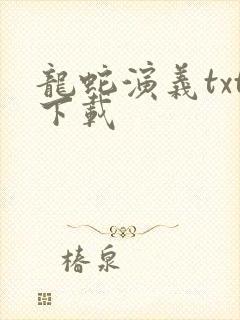 龍蛇演義txt
下載
椿泉